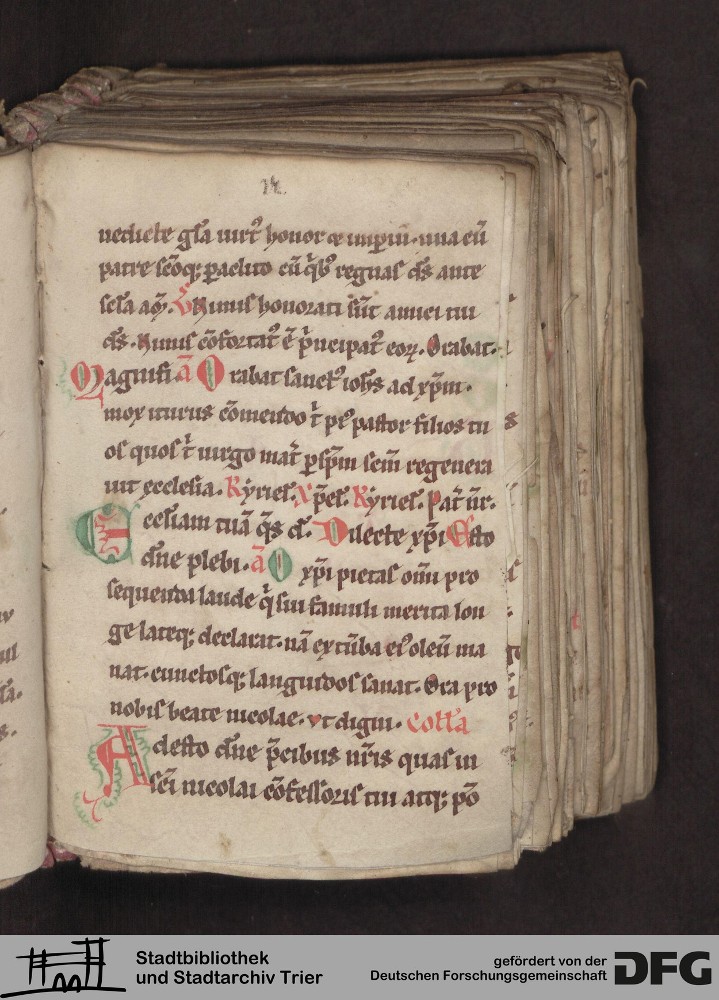 14.
nedicte gl̄a uirt᷒ honor ⁊ imꝑiū. una cū
patre sc̄oq; ꝑaclito cū q̇bꝫ regnas ds̄ ante
sc̄la am̄. V̄ Nimis honorati s̄t amici tui
ds̄. Nimis cōfortat᷒ ē p̄ncipat᷒ eoꝝ. Orabat.
Magnifi ā Orabat sanct᷒ ioh̄s ad xp̄m.
mox iturus cōmendo t̄ pi᷒ pastor filios tu
os quos t̄ uirgo mat̄ ꝑ sp̄m scm̄ regenera
uit ecclesia. Kyriel᷒. Xp̄el᷒. Kyriel᷒. Pat̄ nr̄.
Eccl̄esiam tuā q̄s d̄. Dilecte xp̄i Esto
dn̄e plebi. ā O xp̄i pietas om̄i pro
sequenda laude q̄ sui famuli merita lon
ge lateq; declarat. nā ex tūba ei᷒ oleū ma
nat. cunctosq; languidos sanat. Ora pro
nobis beate nicolae. vt digni. Coll̄a
Adesto dn̄e p̄cibus nr̄is quas in
sc̄i nicolai cōfessoris tui atq; pō
Stadtbibliothek
und Stadtarchiv Trier
gefördert von der
Deutschen Forschungsgemeinschaft
DFG